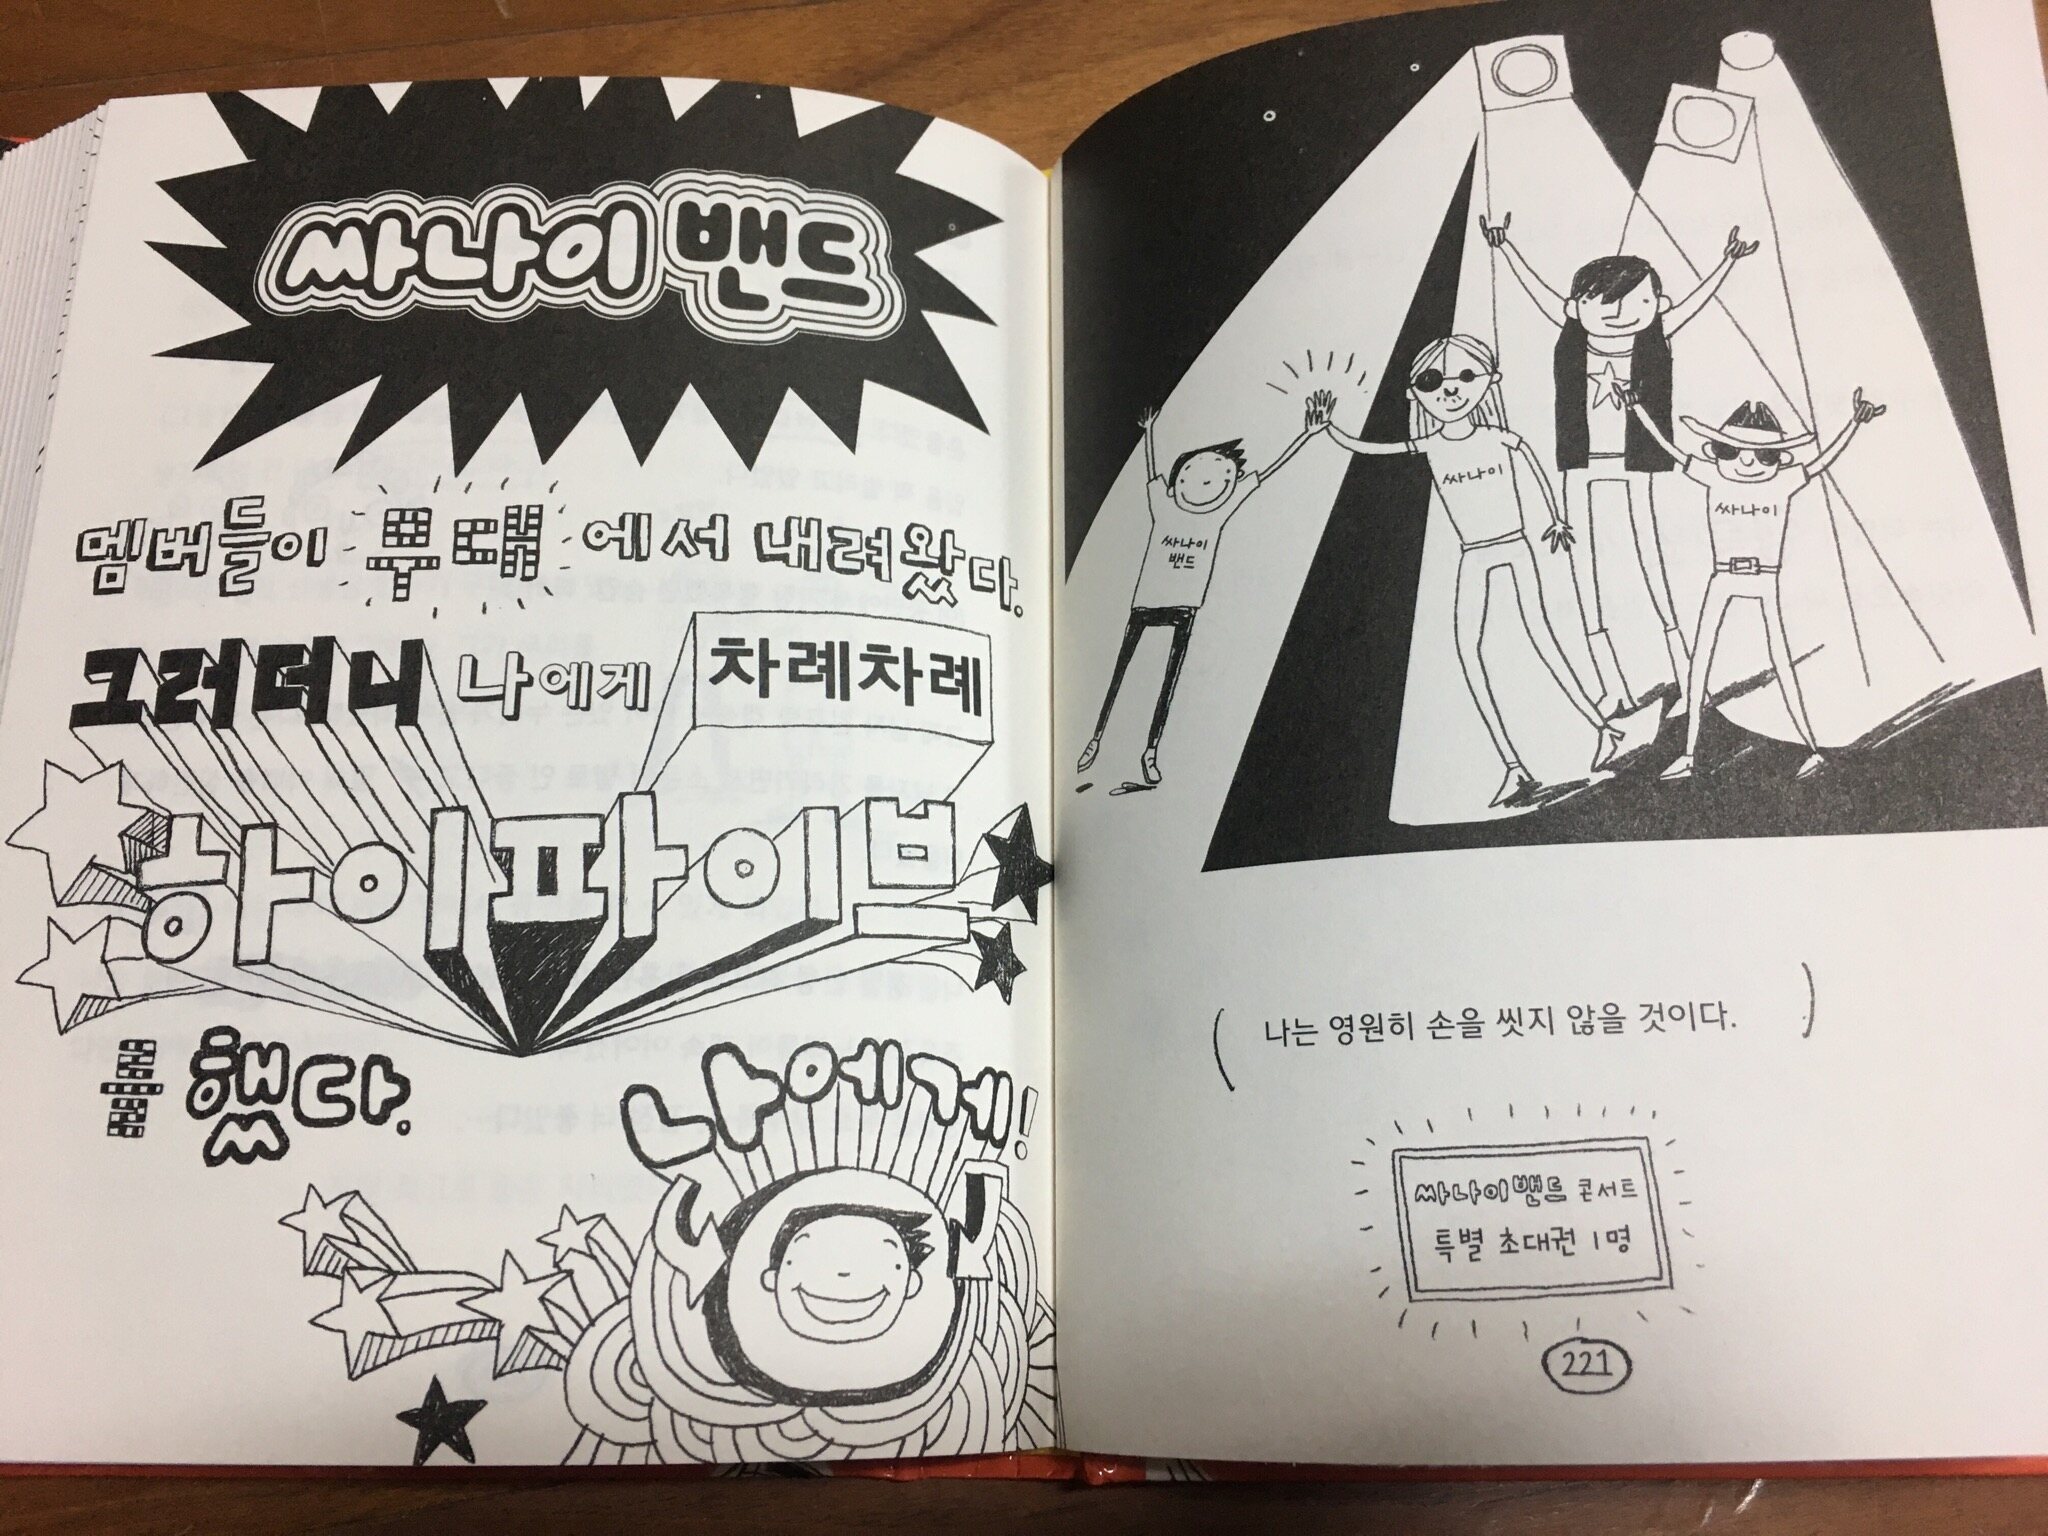 싸나이 밴드
멤버들이 무대에서 내려왔다.
그러더니 나에게 차례차례
하이파이브
를 했다.
나에게!
싸나이
밴드
싸나이
싸나이
( 나는 영원히 손을 씻지 않을 것이다. )
싸나이 밴드 콘서트
특별 초대권 1명
221